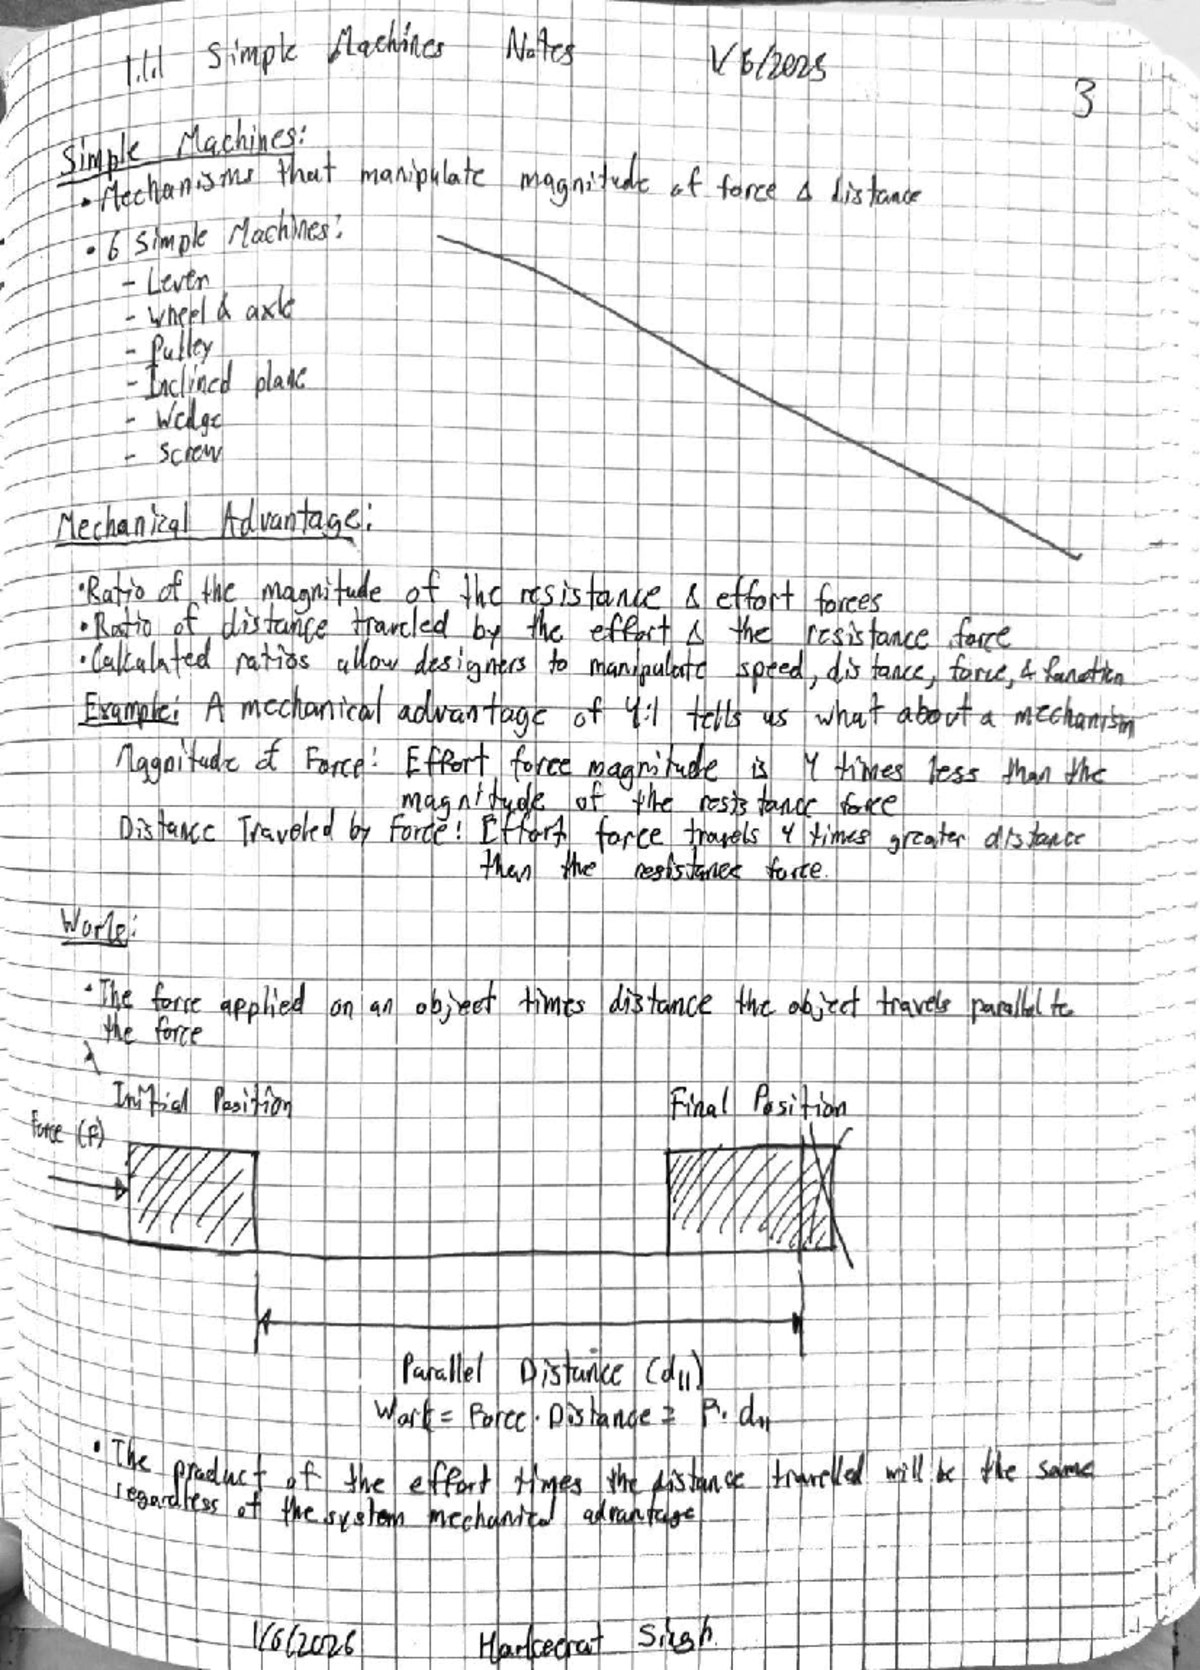 1.1.1 Simple Machines Notes 1/6/2025
3
Simple Machines:
• Mechanisms that manipulate magnitude of force & distance
• 6 Simple Machines:
- Lever
- Wheel & axle
- Pulley
- Inclined plane
- Wedge
- Screw
Mechanical Advantage:
• Ratio of the magnitude of the resistance & effort forces
• Ratio of distance traveled by the effort & the resistance force
• Calculated ratios allow designers to manipulate speed, distance, force, & function
Example: A mechanical advantage of 4:1 tells us what about a mechanism
Magnitude of Force: Effort force magnitude is 4 times less than the
magnitude of the resistance force
Distance Traveled by Force: Effort force travels 4 times greater distance
than the resistance force.
Work:
• The force applied on an object times distance the object travels parallel to
the force
Initial Position Final Position
Force (F)
Parallel Distance (d||)
Work = Force · Distance = F · d||
• The product of the effort times the distance travelled will be the same
regardless of the system mechanical advantage
1/6/2026 Singh